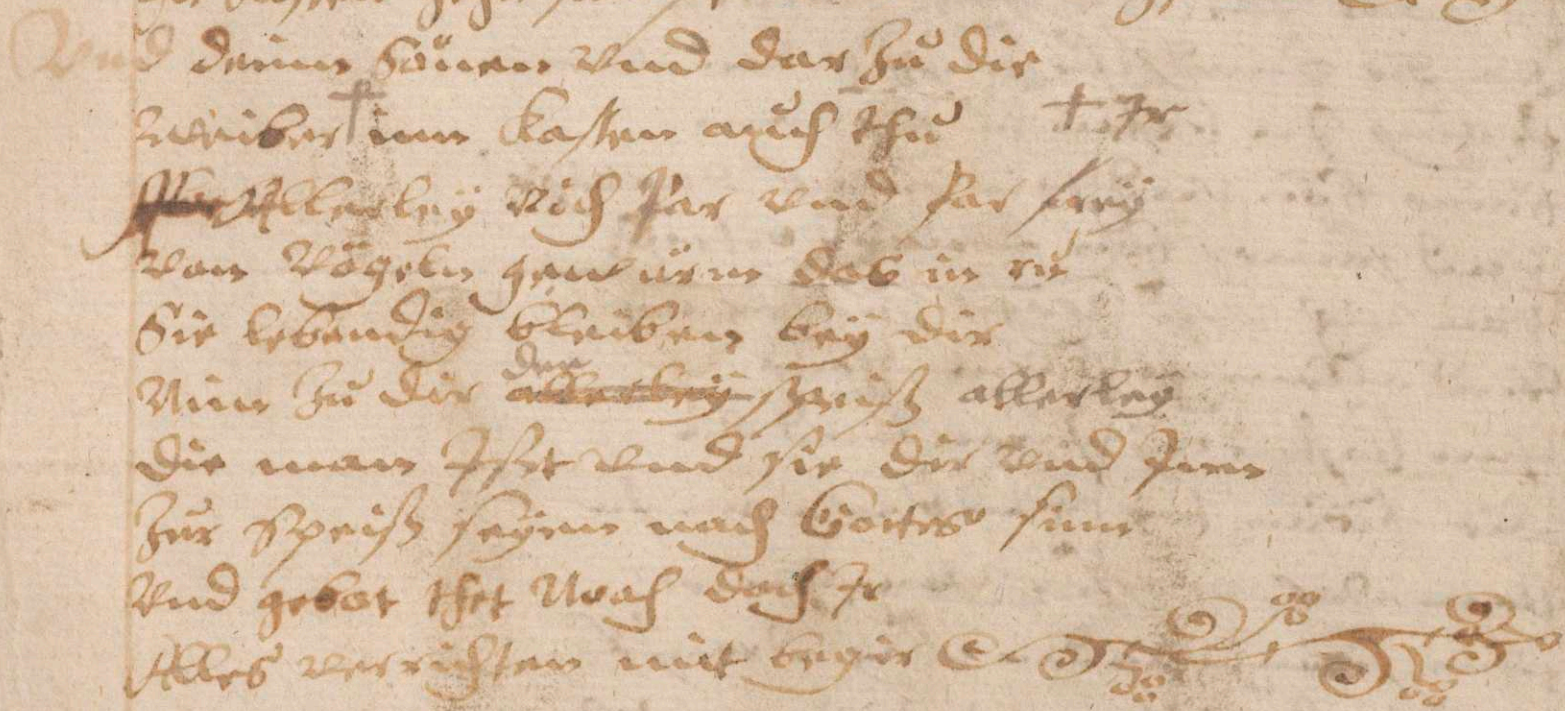 Vnd deinn Sönen vnd dar Zů die
Weiber † inn Kasten auch thů † Jr
Allerley Vich Par vnd Par frey
von Vögeln gewürm das in rů
Sie lebendig bleiben bey dir
Nim Zů dir allerley den speiß allerley
die man Jsst vnd sie dir vnd Jnen
Zur Speiß seyen nach Gottes sinn
Vnd gebot thet Noah doch Jr
Alles verrichten mit begir